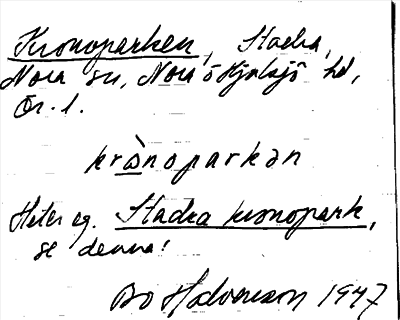 Kronoparken, Stadra,
Nora sn, Nora o Hjulsjö hd,
Ör. l.
krònoparkən
Heter eg. Stadra kronopark,
se denna!
Bo Halvarson 1947